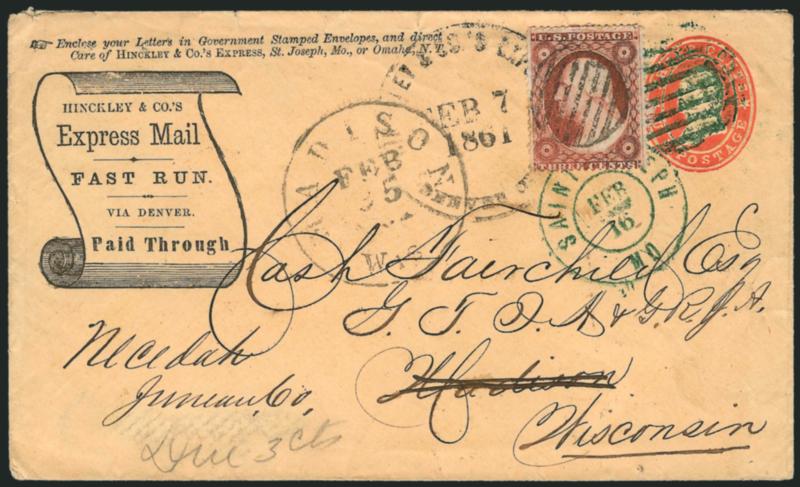 Enclose your Letters in Government Stamped Envelopes, and direct
Care of HINCKLEY & CO.'S EXPRESS, St. Joseph, Mo., or Omaha, N. T.
HINCKLEY & CO.'S
Express Mail
FAST RUN.
VIA DENVER.
Paid Through
& CO.'S EXP
FEB 7
1861
MADISON
FEB
WIS
U.S. POSTAGE
THREE CENTS
CENTS
POSTAGE
SAINT JOSEPH
FEB
16
MO
Cash Fairchild Esq
Madison
Wisconsin
Necedah
Juneau, Co,
Due 3 cts